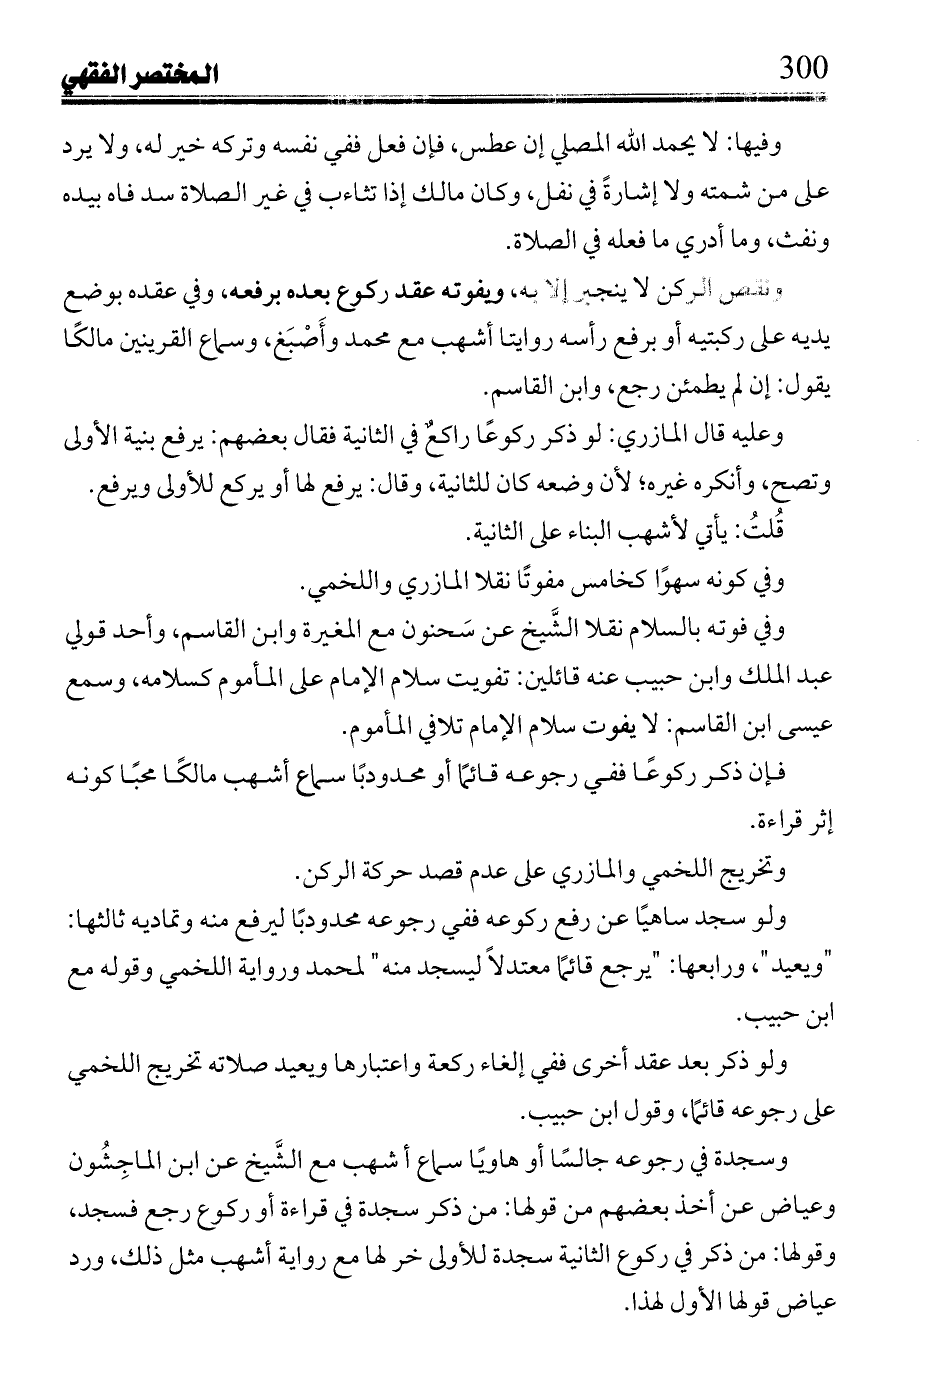 300
المختصر الفقهي
وفيها: لا يحمد الله المصلي إن عطس، فإن فعل ففي نفسه وتركه خير له، ولا يرد
على من شمته ولا إشارةً في نفل، وكان مالك إذا تثاءب في غير الصلاة سد فاه بيده
ونفث، وما أدري ما فعله في الصلاة.
ونقص الركن لا ينجبر إلا به، ويفوته عقد ركوع بعده برفعه، وفي عقده بوضع
يديه على ركبتيه أو برفع رأسه روايتا أشهب مع محمد وأَصْبَغ، وسماع القرينين مالكًا
يقول: إن لم يطمئن رجع، وابن القاسم.
وعليه قال المازري: لو ذكر ركوعًا راكعٌ في الثانية فقال بعضهم: يرفع بنية الأولى
وتصح، وأنكره غيره؛ لأن وضعه كان للثانية، وقال: يرفع لها أو يركع للأولى ويرفع.
قُلتُ: يأتي لأشهب البناء على الثانية.
وفي كونه سهوًا كخامس مفوتًا نقلا المازري واللخمي.
وفي فوته بالسلام نقلا الشَّيخ عن سَحنون مع المغيرة وابن القاسم، وأحد قولي
عبد الملك وابن حبيب عنه قائلين: تفويت سلام الإمام على المأموم كسلامه، وسمع
عيسى ابن القاسم: لا يفوت سلام الإمام تلافي المأموم.
فإن ذكر ركوعًا ففي رجوعه قائمًا أو محدودبًا سماع أشهب مالكًا محبًا كونه
إثر قراءة.
وتخريج اللخمي والمازري على عدم قصد حركة الركن.
ولو سجد ساهيًا عن رفع ركوعه ففي رجوعه محدودبًا ليرفع منه وتماديه ثالثها:
"ويعيد"، ورابعها: "يرجع قائمًا معتدلاً ليسجد منه" لمحمد ورواية اللخمي وقوله مع
ابن حبيب.
ولو ذكر بعد عقد أخرى ففي إلغاء ركعة واعتبارها ويعيد صلاته تخريج اللخمي
على رجوعه قائمًا، وقول ابن حبيب.
وسجدة في رجوعه جالسًا أو هاويًا سماع أشهب مع الشَّيخ عن ابن الماجِشُون
وعياض عن أخذ بعضهم من قولها: من ذكر سجدة في قراءة أو ركوع رجع فسجد،
وقولها: من ذكر في ركوع الثانية سجدة للأولى خر لها مع رواية أشهب مثل ذلك، ورد
عياض قولها الأول لهذا.